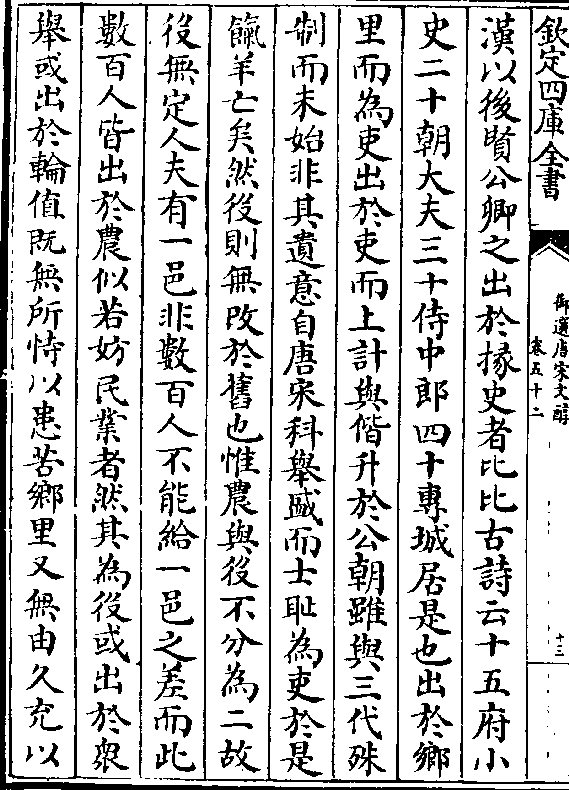 欽定四庫全書
御選唐宋文醇
卷五十二
十三
漢以後賢公卿之出於掾史者比比古詩云十五府小
史二十朝大夫三十侍中郎四十專城居是也出於鄉
里而為吏出於吏而上計與偕升於公朝雖與三代殊
制而未始非其遺意自唐宋科舉盛而士恥為吏於是
餼羊亡矣然役則無改於舊也惟農與役不分為二故
役無定人夫有一邑非數百人不能給一邑之差而此
數百人皆出於農似若妨民業者然其為役或出於衆
舉或出於輪值既無所恃以患苦鄉里又無由久充以